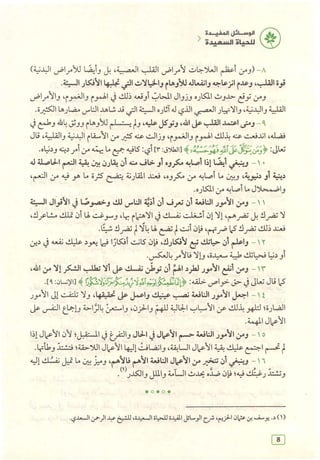 الوسائل المفيدة
للحياة السعيدة
٨- (ومن أعظم العلاجات لأمراض القلب العصبية، بل وأيضًا للأمراض البدنية)
قوة القلب، وعدم انزعاجه وانفعاله للأوهام والخيالات التي تجلبها الأفكار السيئة.
ومن توقع حدوث المكاره وزوال المحاب أوقعه ذلك في الهموم والغموم، والأمراض
القلبية والبدنية، والانهيار العصبي الذي له آثاره السيئة التي قد شاهد الناس مضارها الكثيرة.
٩- ومتى اعتمد القلب على الله، وتوكل عليه، ولم يستسلم للأوهام ووثق بالله وطمع في
فضله، اندفعت عنه بذلك الهموم والغموم، وزالت عنه كثير من الأسقام البدنية والقلبية، قال
تعالى: ﴿وَمَن يَتَوَكَّلْ عَلَى اللَّهِ فَهُوَ حَسْبُهُ﴾ [الطلاق: ٣] أي: كافيه جميع ما يهمه من أمر دينه ودنياه.
١٠- وينبغي أيضًا إذا أصابه مكروه أو خاف منه أن يقارن بين بقية النعم الحاصلة له
دينية أو دنيوية، وبين ما أصابه من مكروه، فعند المقارنة يتضح كثرة ما هو فيه من النعم،
واضمحلال ما أصابه من المكاره.
١١- ومن الأمور النافعة أن تعرف أن أذيَّة الناس لك وخصوصًا في الأقوال السيئة
لا تضرك بل تضرهم، إلا إن أشغلت نفسك في الاهتمام بها، وسوغت لها أن تملك مشاعرك،
فعند ذلك تضرك كما ضرتهم، فإن أنت لم تضع لها بالًا لم تضرك شيئًا.
١٢- واعلم أن حياتك تبع لأفكارك، فإن كانت أفكارًا فيما يعود عليك نفعه في دين
أو دنيا فحياتك طيبة سعيدة، وإلا فالأمر بالعكس.
١٣- ومن أنفع الأمور لطرد الهمِّ أن توطِّن نفسك على ألا تطلب الشكر إلا من الله،
كما قال تعالى في حق خواص خلقه: ﴿إِنَّمَا نُطْعِمُكُمْ لِوَجْهِ اللَّهِ لَا نُرِيدُ مِنكُمْ جَزَاءً وَلَا شُكُورًا﴾ [الإنسان: ٩].
١٤- اجعل الأمور النافعة نصب عينيك واعمل على تحقيقها، ولا تلتفت إلى الأمور
الضارة؛ لتلهو بذلك عن الأسباب الجالبة للهم والحزن، واستعن بالراحة وإجماع النفس على
الأعمال المهمة.
١٥- ومن الأمور النافعة حسم الأعمال في الحال والتفرغ في المستقبل؛ لأن الأعمال إذا
لم تحسم اجتمع عليك بقية الأعمال السابقة، وانضافت إليها الأعمال اللاحقة؛ فتشتد وطأتها.
١٦- وينبغي أن تتخير من الأعمال النافعة الأهم فالأهم، وميز بين ما تميل نفسك إليه
وتشتد رغبتك فيه؛ فإن ضده يحدث السآمة والملل والكدر.(١)
(١) د. يوسف بن عثمان الحزيم، شرح الوسائل المفيدة للحياة السعيدة، للشيخ عبد الرحمن السعدي.
8